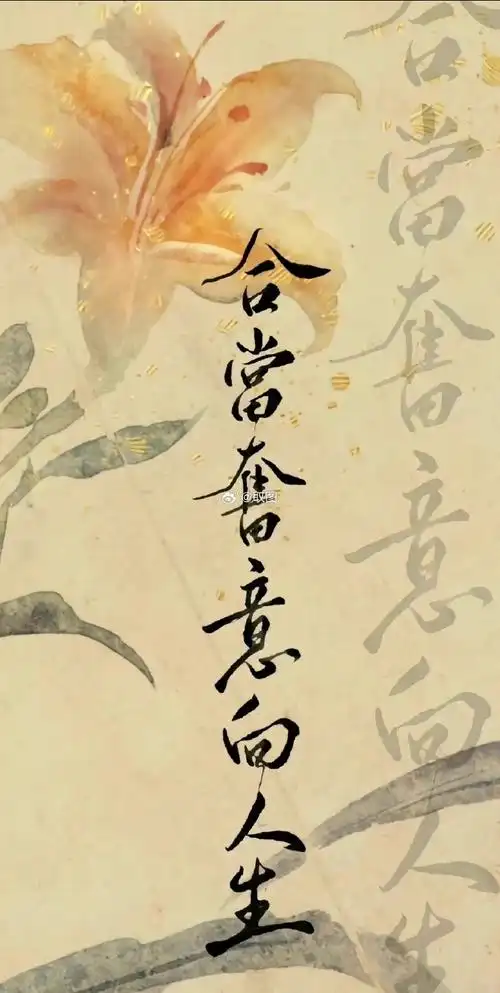 合當奮意向人生
合當奮意向人生
@取图